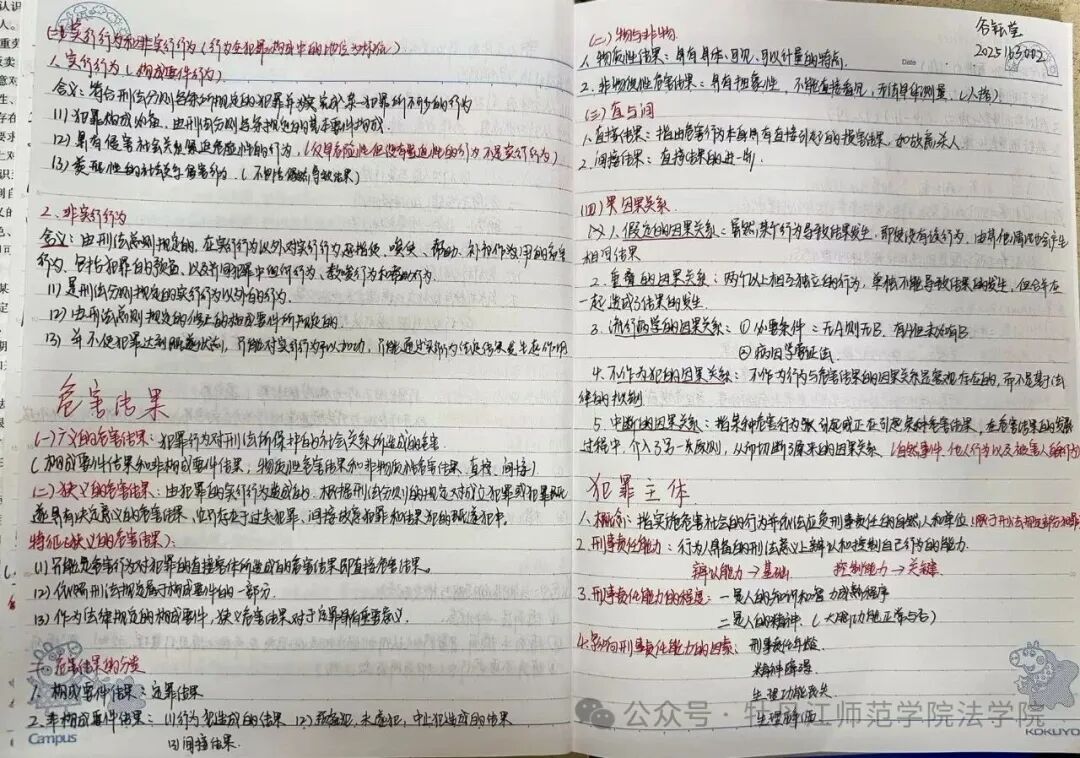 (三)实行行为和非实行行为(行为在犯罪构成中的地位为标准)
1.实行行为(构成要件行为)
含义:符合刑法分则各条所规定的犯罪并为完成某一犯罪所不可少的行为
(1)犯罪构成的,由刑法分则各条规定的基本要件构成.
(2)具有侵害社会关系紧迫危险性的行为.(仅有危险性但没有紧迫性的行为不是实行行为)
(3)类型性的法益侵害行为.(不包括偶然导致结果)
2.非实行行为
含义:由刑法总则规定的,在实行行为以外对实行行为起指使、唆使、帮助、补充作用的危害
行为.包括犯罪的预备,以及共同犯罪中组织行为、教唆行为和帮助行为.
(1)是刑法分则规定的实行行为以外的行为.
(2)由刑法总则规定的修正的构成要件所规定的
(3)并不使犯罪达到既遂状态,只能对实行行为予以加功,只能通过实行行为法使结果发生起作用
危害结果
(一)广义的危害结果:犯罪行为对刑法所保护的社会关系所造成的危害
(构成要件结果和非构成要件结果,物质性危害结果和非物质性危害结果,直接、间接)
(二)狭义的危害结果:由犯罪的实行行为造成的,根据刑法分则的规定对成立犯罪或犯罪既
遂具有决定意义的危害结果,它只存在于过失犯罪、间接故意犯罪和结果犯的既遂犯中.
特征(狭义的危害结果):
(1)只能是危害行为对犯罪的直接客体所造成的危害结果即直接危害结果.
(2)依照刑法规定属于构成要件的一部分.
(3)作为法律规定的构成要件,狭义危害结果对于定罪具有重要意义.
一、危害结果的分类
1.构成要件结果:定罪结果
2.非构成要件结果:(1)行为犯造成的结果 (2)预备犯、未遂犯、中止犯造成的结果
(3)间接结果.
Campus
(二)物与非物
1.物质性结果:具有具体、可见、可以计量的特点.
2.非物质性危害结果:具有抽象性 不能直接看见,无法具体测量.(人格)
(三)直与间
1.直接结果:指由危害行为本身所有直接引起的损害结果,如故意杀人.
2.间接结果:直接结果的进一步.
(四)果 因果关系.
(X)1.假定的因果关系:虽然某个行为导致结果发生,即使没有该行为,由其他情况也会产生
相同结果
2.重叠的因果关系:两个以上相互独立的行为,单独不能导致结果的发生,但合并在
一起造成了结果的发生.
3.流行病学的因果关系:①必要条件:无A则无B.有A但未必有B.
②病因学要证法.
4.不作为犯的因果关系:不作为行为与危害结果的因果关系是客观存在的,而不是基于法
律的拟制
5.中断的因果关系:指某种危害行为引起或正在引起某种危害结果,在危害结果的发展
过程中,介入了另一原则,从而切断了原来的因果关系.(自然事件、他人行为以及被害人的行为)
犯罪主体
1.概念:指实施危害社会的行为并依法应负刑事责任的自然人和单位.(限于刑法规定部分犯罪)
2.刑事责任能力:行为人具备的刑法意义上辨认和控制自己行为的能力.
辨认能力→基础 控制能力→关键.
3.刑事责任能力的程度:一是人的知识和智力成熟程序
二是人的精神.(大脑功能正常与否)
4.影响刑事责任能力的因素:刑事责任年龄
精神障碍
生理功能丧失
生理醉酒
2025163002
Date
公众号·牡丹江师范学院法学院
KOKUYO